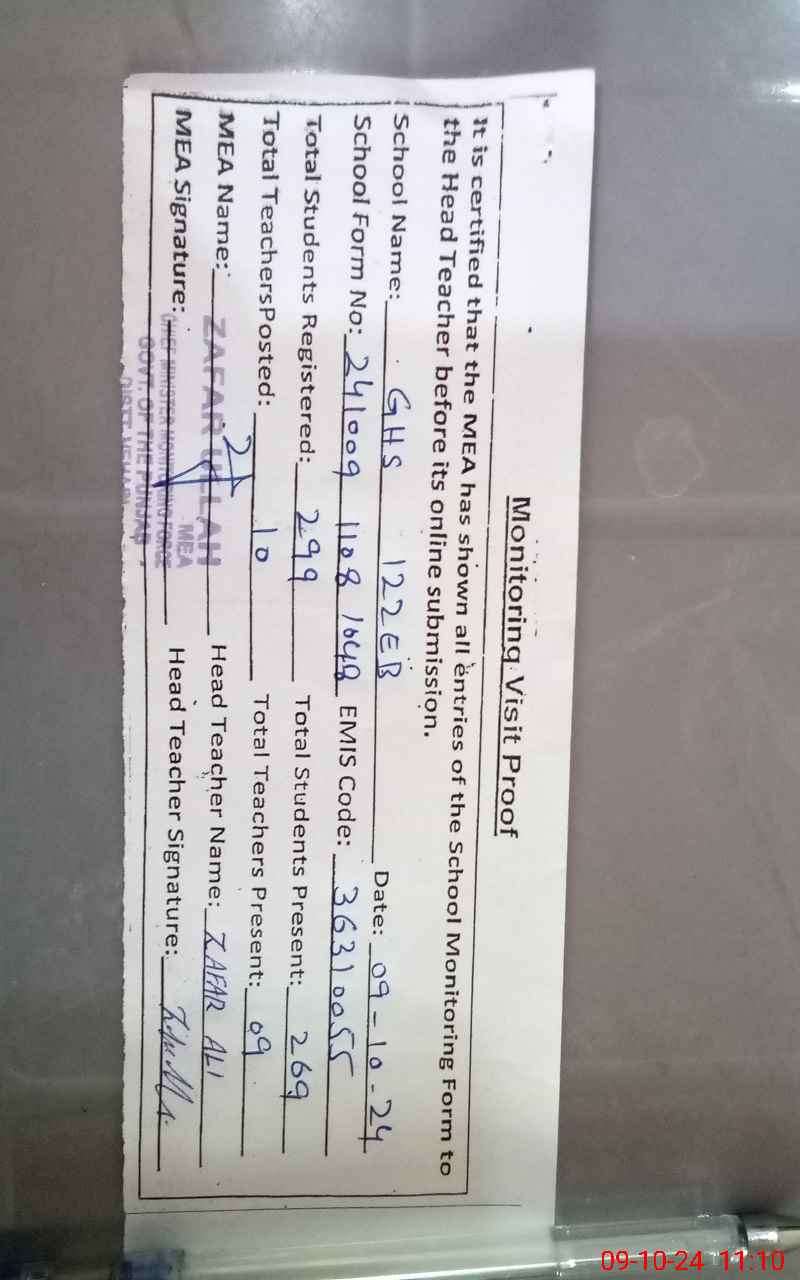 Monitoring Visit Proof
It is certified that the MEA has shown all entries of the School Monitoring Form to
the Head Teacher before its online submission.
School Name: GHS 122EB Date: 09-10-24
School Form No: 241009 1108 1648 EMIS Code: 36310055
Total Students Registered: 299 Total Students Present: 269
Total TeachersPosted: 10 Total Teachers Present: 09
MEA Name: ZAFAR ULLAH Head Teacher Name: ZAFAR ALI
MEA
MEA Signature: Head Teacher Signature:
CHIEF MINISTER MONITORING FORCE
GOVT. OF THE PUNJAB
DISTT. VEHARI
09-10-24 11:10